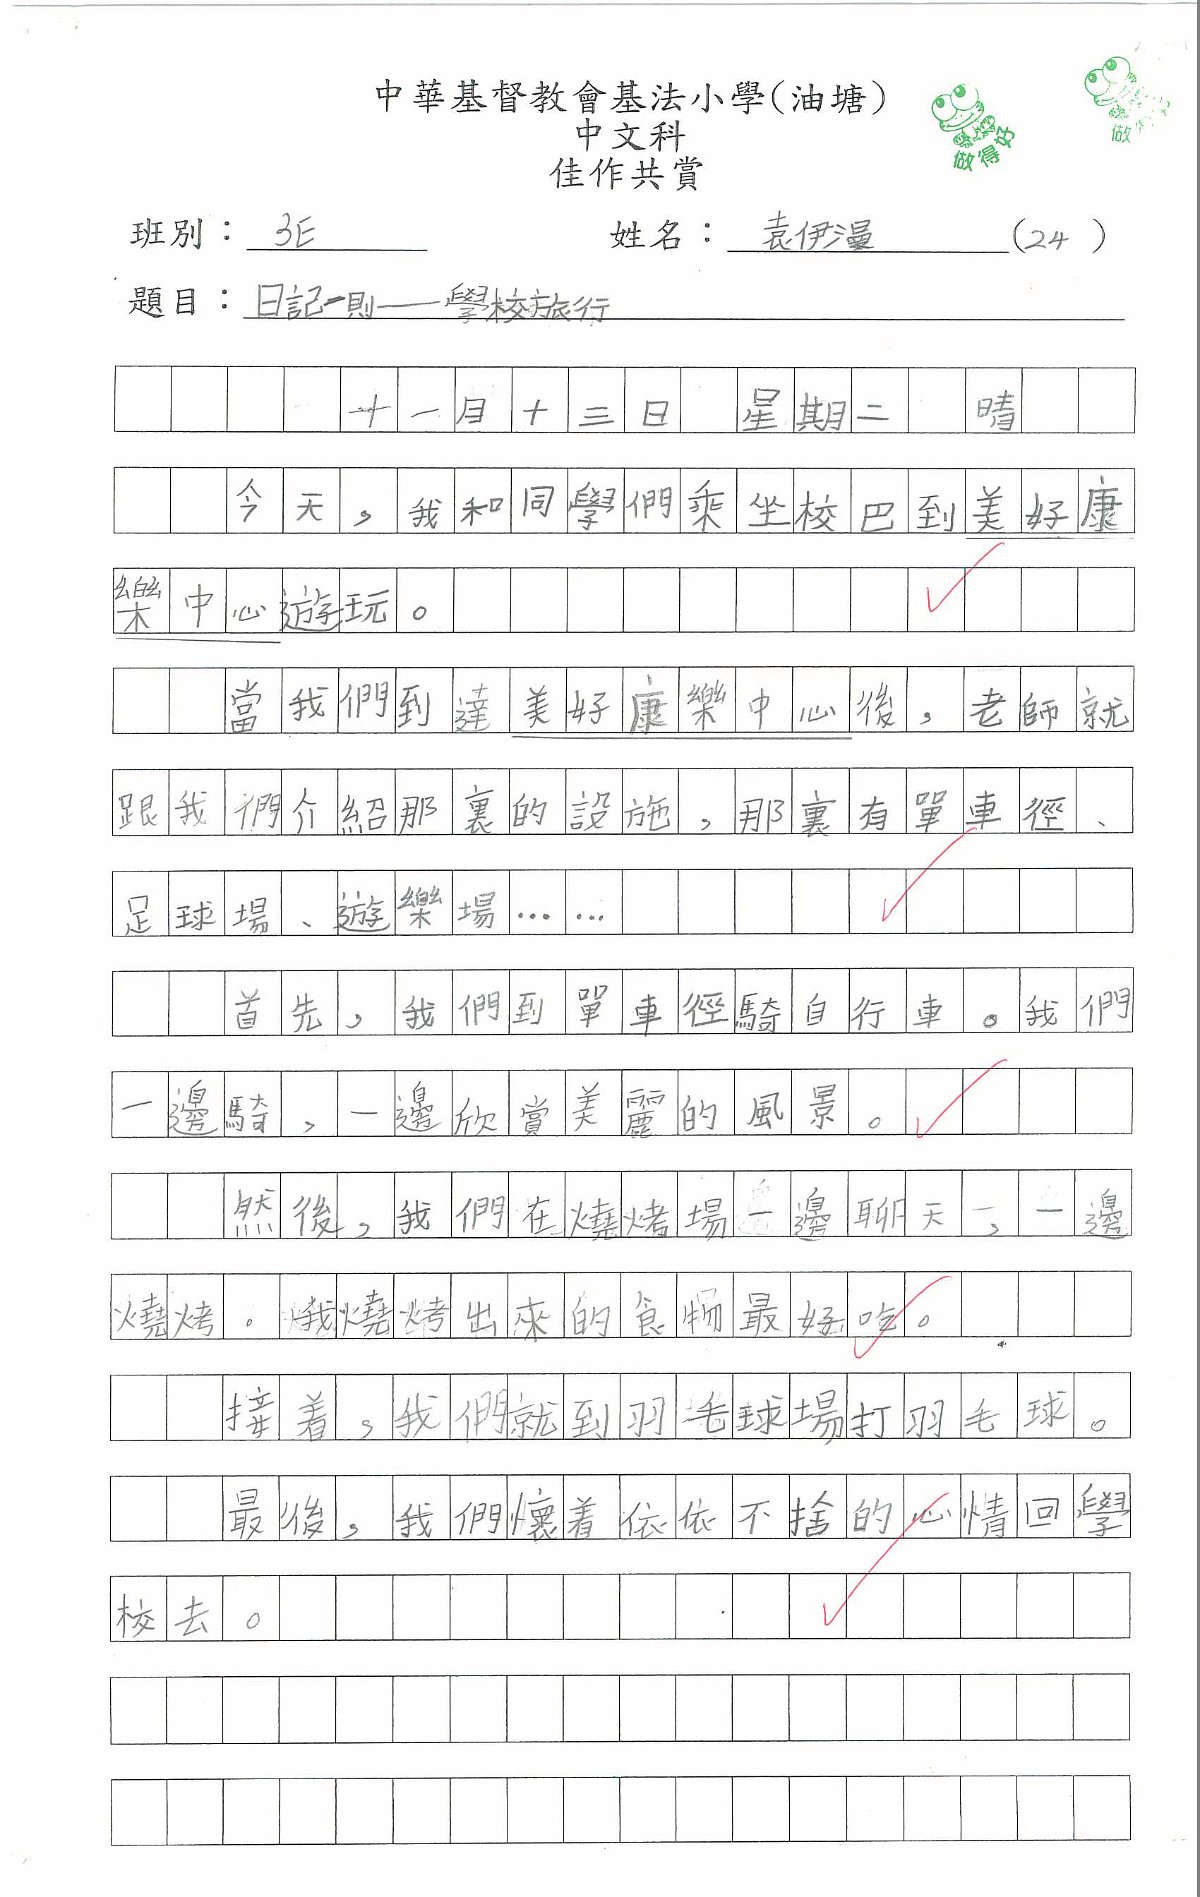 中華基督教會基法小學(油塘)
中文科
佳作共賞
做得好
做
班別：3E 姓名：袁伊漫(24)
題目：日記一則——學校旅行
十一月十三日 星期二 晴
今天，我和同學們乘坐校巴到美好康
樂中心遊玩。
當我們到達美好康樂中心後，老師就
跟我們介紹那裏的設施，那裏有單車徑、
足球場、遊樂場……
首先，我們到單車徑騎自行車。我們
一邊騎，一邊欣賞美麗的風景。
然後，我們在燒烤場一邊聊天，一邊
燒烤。我燒烤出來的食物最好吃。
接着，我們就到羽毛球場打羽毛球。
最後，我們懷着依依不捨的心情回學
校去。